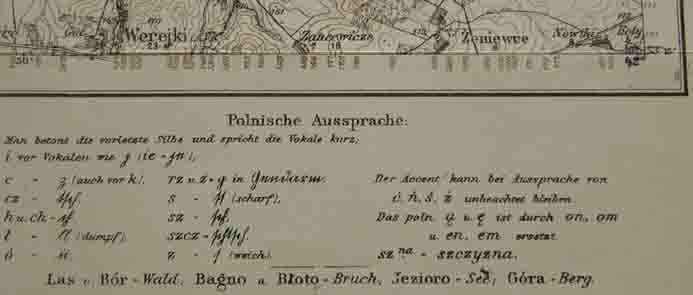 Werejki
Zancewicze
Zeniewce
Polnische Aussprache:
Man betont die vorletzte Silbe und spricht die Vokale kurz,
i vor Vokalen wie j (ie - je),
c - z (auch vor k). rz u. ż - g in Gendarm. Der Accent kann bei Aussprache von
cz - tsch. s - ß (scharf). ć. ń. ś. ź unbeachtet bleiben.
h u. ch - ch sz - sch. Das poln ą u. ę ist durch on, om
ł - ll (dumpf). szcz - schtsch. u. en, em ersetzt.
ó - u. z - s (weich). sz na - szczyzna.
Las u. Bór - Wald, Bagno u. Błoto - Bruch, Jezioro - See, Góra - Berg.